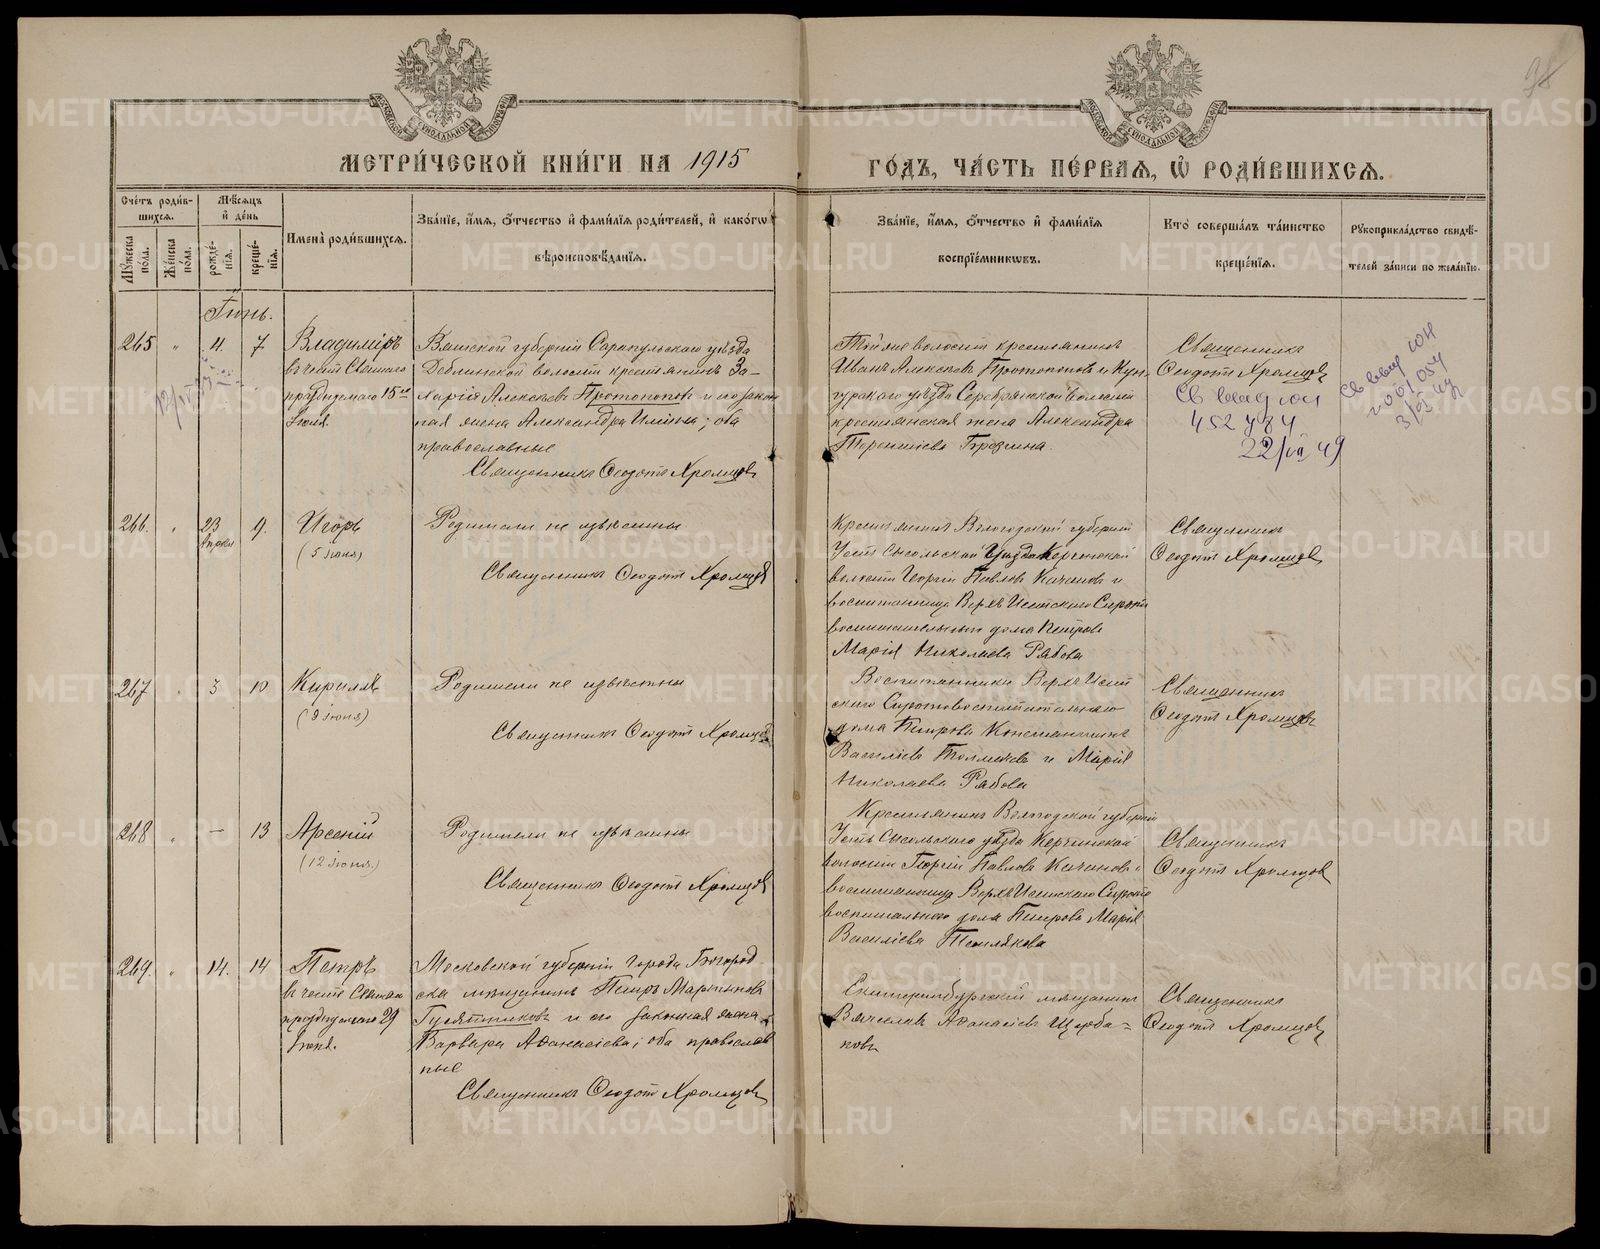 98
МОСКОВСКОЙ СѴНОДАЛЬНОЙ ТИПОГРАФІИ
МОСКОВСКОЙ СѴНОДАЛЬНОЙ ТИПОГРАФІИ
МЕТРИ́ЧЕСКОЙ КНИ́ГИ НА 1915
ГО́ДЪ, ЧА́СТЬ ПЕ́РВАѦ, Ѽ РОДИ́ВШИХСѦ.
Сче́тъ роди́в-
шихсѧ.
Мꙋ́жеска по́ла.
Же́нска по́ла.
Мѣ́сѧцъ
и҆ де́нь
рожде́-
нїѧ.
креще́-
нїѧ.
И҆мена̀ роди́вшихсѧ.
Зва́нїе, и҆́мѧ, ѻ҆́тчество и҆ фами́лїѧ роди́телей, и҆ како́гѡ
вѣроисповѣ́данїѧ.
Зва́нїе, и҆́мѧ, ѻ҆́тчество и҆ фами́лїѧ
воспрїе́мникѡвъ.
Кто̀ соверша́лъ та́инство
креще́нїѧ.
Рꙋкоприкла́дство свидѣ́-
телей за́писи по жела́нїю.
Іюнь.
265 " 4. 7 Владиміръ
въ честь Святаго
празднуемаго 15го
Іюля.
Вятской губерніи Сарапульскаго уѣзда
Дебинской волости крестьянинъ За-
харій Алексѣевъ Протопоповъ и его закон
ная жена Александра Ильина; оба
православные
Священникъ Ѳеодотъ Хромцовъ
Той же волости крестьянинъ
Иванъ Алексѣевъ Протопоповъ и Кун-
гурскаго уѣзда Серебрянской волости
крестьянская жена Александра
Терентіева
Священникъ
Ѳеодотъ Хромцовъ
Св выд ЮИ
452484
22/VII 49
Св выд ЮИ
2001054
266. " 23
Апрѣля 9. Игорь
(5 Іюня)
Родители не извѣстны
Священникъ Ѳеодотъ Хромцовъ
Крестьянинъ Вологодской губерніи
Усть Сысольскаго Уѣзда Керчемской
волости Георгій Павловъ Качановъ и
воспитанница Верхъ Исетскаго Сиропи
воспитательнаго дома Петрова
Марія Николаева Рябова
Священникъ
Ѳеодотъ Хромцовъ
267 " 3 10 Кириллъ
(9 Іюня)
Родители не извѣстны
Священникъ Ѳеодотъ Хромцовъ
Воспитанники Верхъ Исет
скаго Сиропвоспитательнаго
дома Петрова Константинъ
Василіевъ и Марія
Николаева Рябова
Священникъ
Ѳеодотъ Хромцовъ
268 " — 13 Арсеній
(12 Іюня)
Родители не извѣстны
Священникъ Ѳеодотъ Хромцовъ
Крестьянинъ Вологодской губерніи
Усть Сысольскаго уѣзда Керчемской
волости Георгій Павловъ Качановъ и
воспитанница Верхъ Исетскаго Сиропо
воспитальнаго дома Петрова Марія
Василіева Теплякова
Священникъ
Ѳеодотъ Хромцовъ
269. " 14. 14 Петръ
въ честь Святаго
празднуемаго 29
Іюня.
Московской губерніи города Богород
ска мѣщанинъ Петръ Мартиновъ
Гусятниковъ и его законная жена
Варвара Аѳанасіева; оба православ
ные
Священникъ Ѳеодотъ Хромцовъ
Екатеринбургскій мѣщанинъ
Вячеславъ Аѳанасіевъ Щерба-
ковъ
Священникъ
Ѳеодотъ Хромцовъ
METRIKI.GASO-URAL.RU